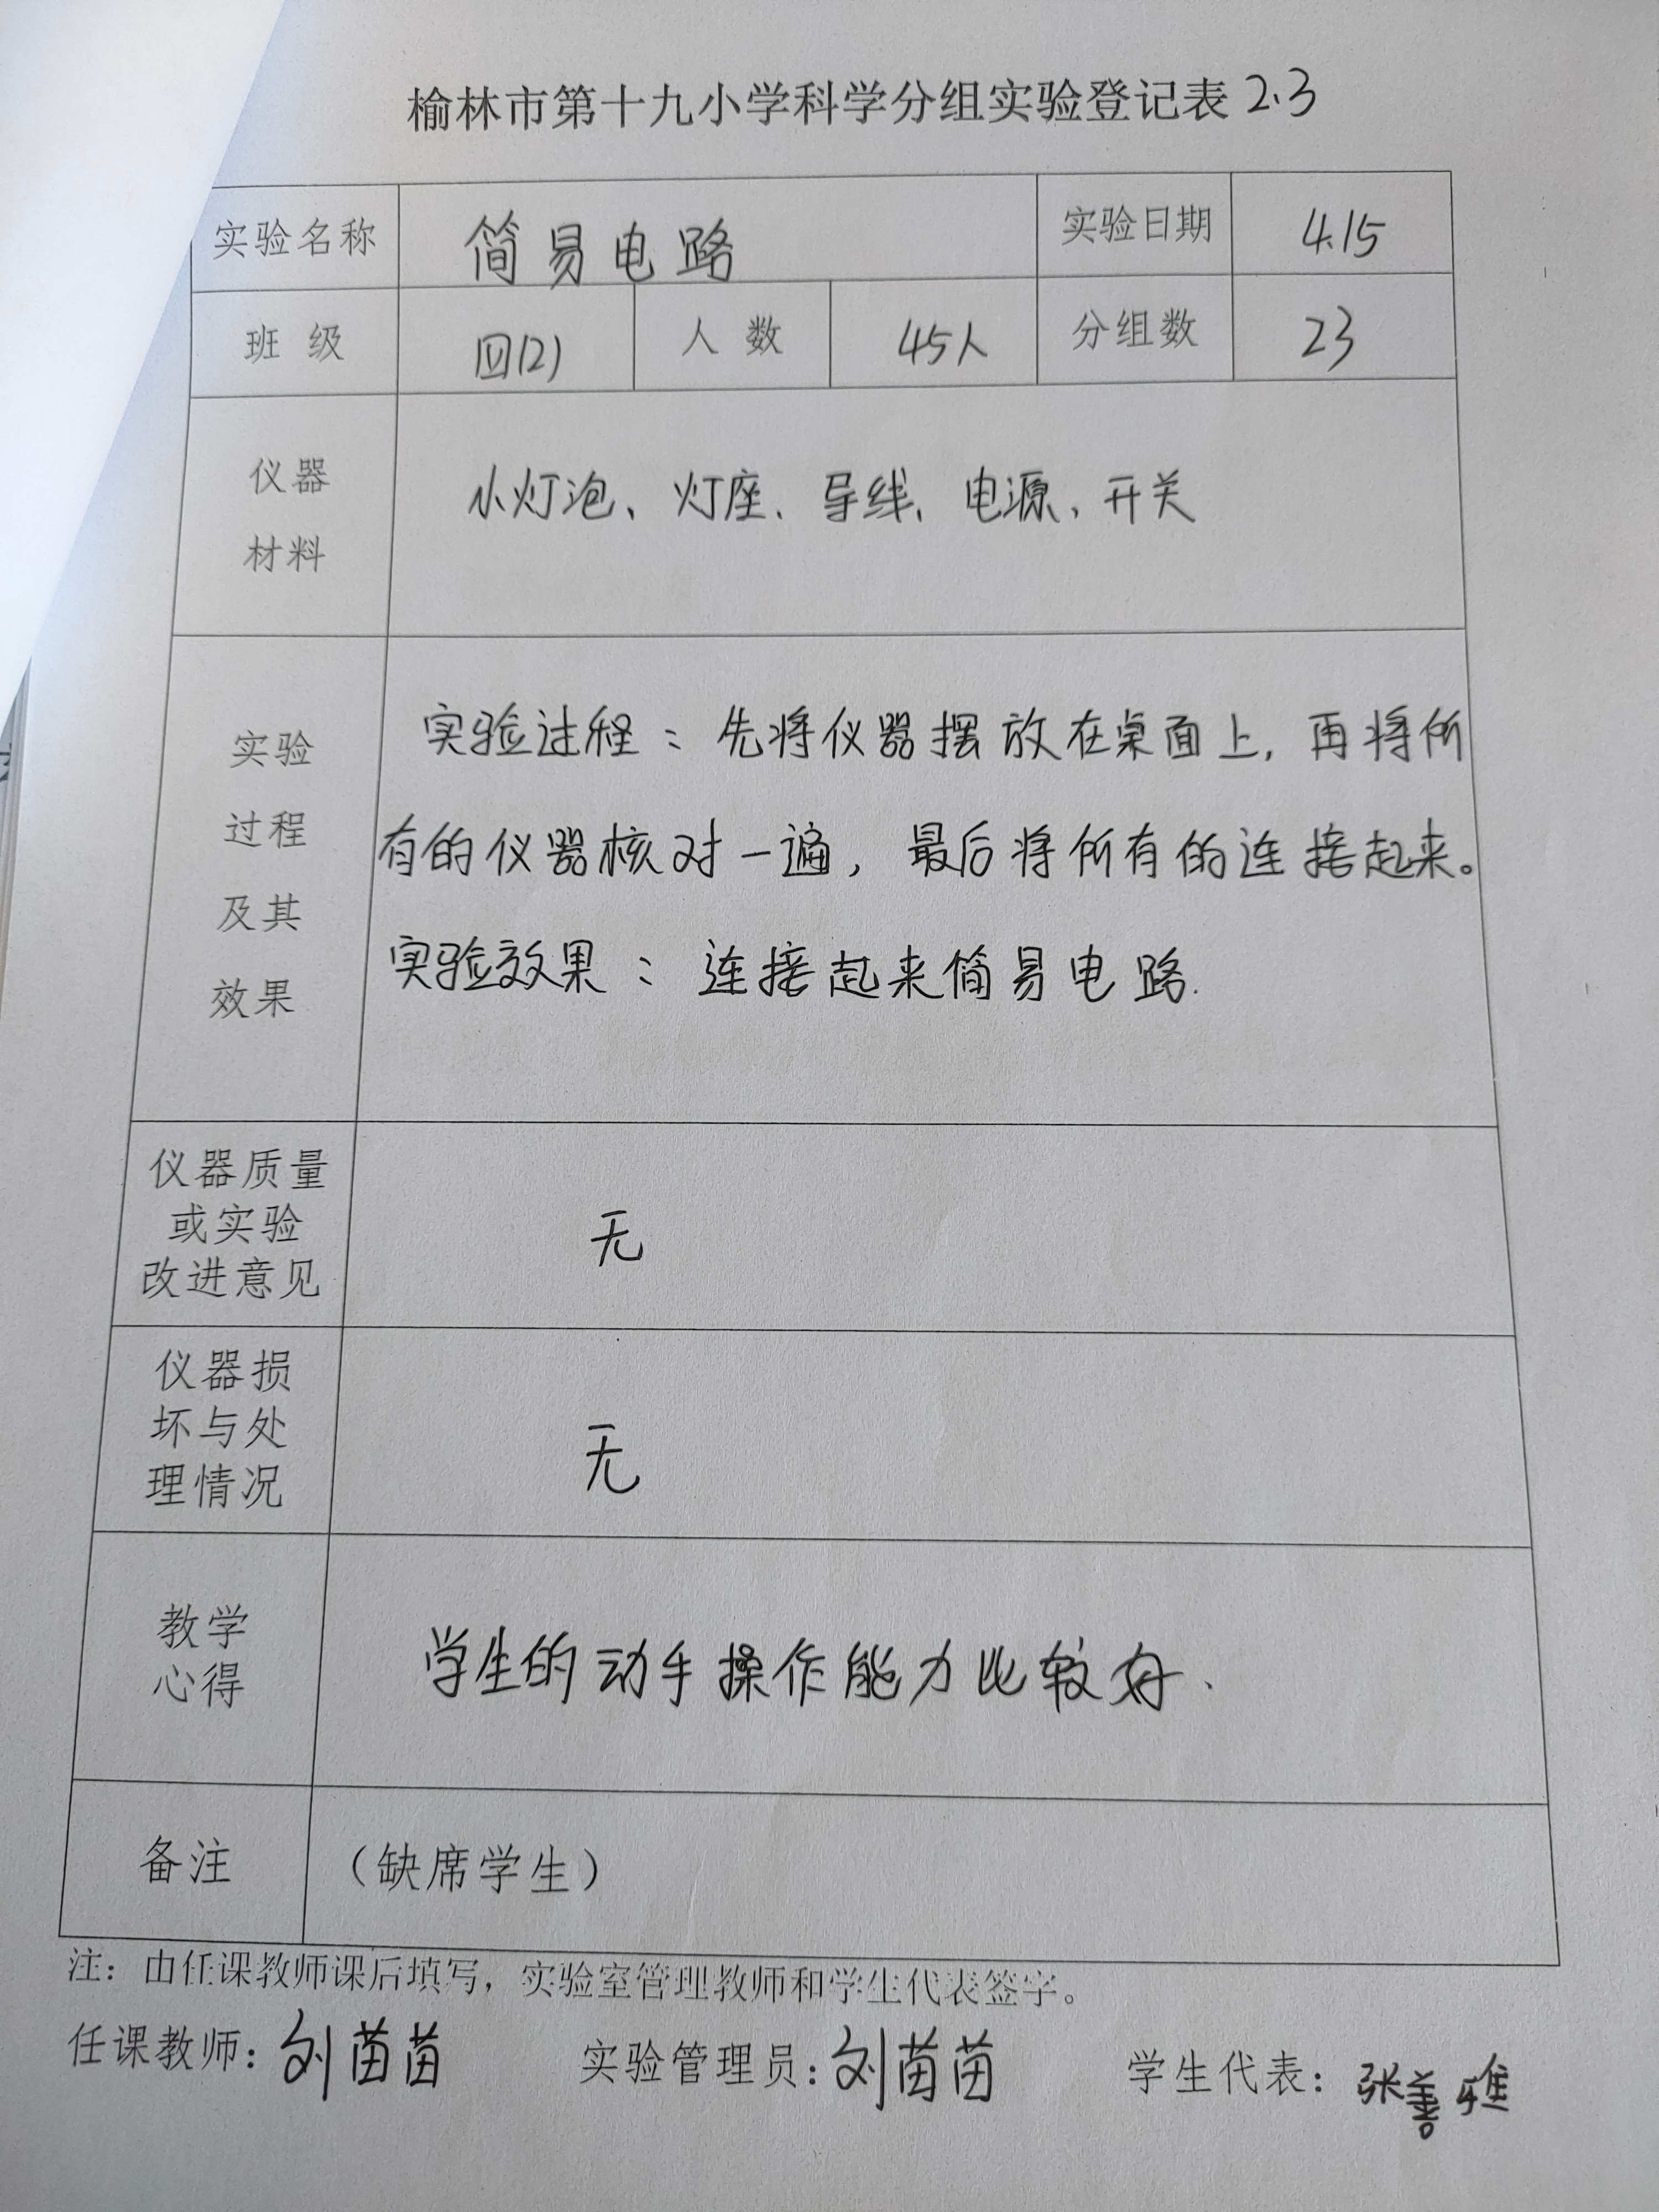 榆林市第十九小学科学分组实验登记表 2.3
实验名称 简易电路 实验日期 4.15
班 级 四(2) 人 数 45人 分组数 23
仪器
材料
小灯泡、灯座、导线、电源、开关
实验
过程
及其
效果
实验过程：先将仪器摆放在桌面上，再将所
有的仪器核对一遍，最后将所有的连接起来。
实验效果：连接起来简易电路.
仪器质量
或实验
改进意见
无
仪器损
坏与处
理情况
无
教学
心得
学生的动手操作能力比较好.
备注 （缺席学生）
注：由任课教师课后填写，实验室管理教师和学生代表签字。
任课教师：刘苗苗 实验管理员：刘苗苗 学生代表：张善雅